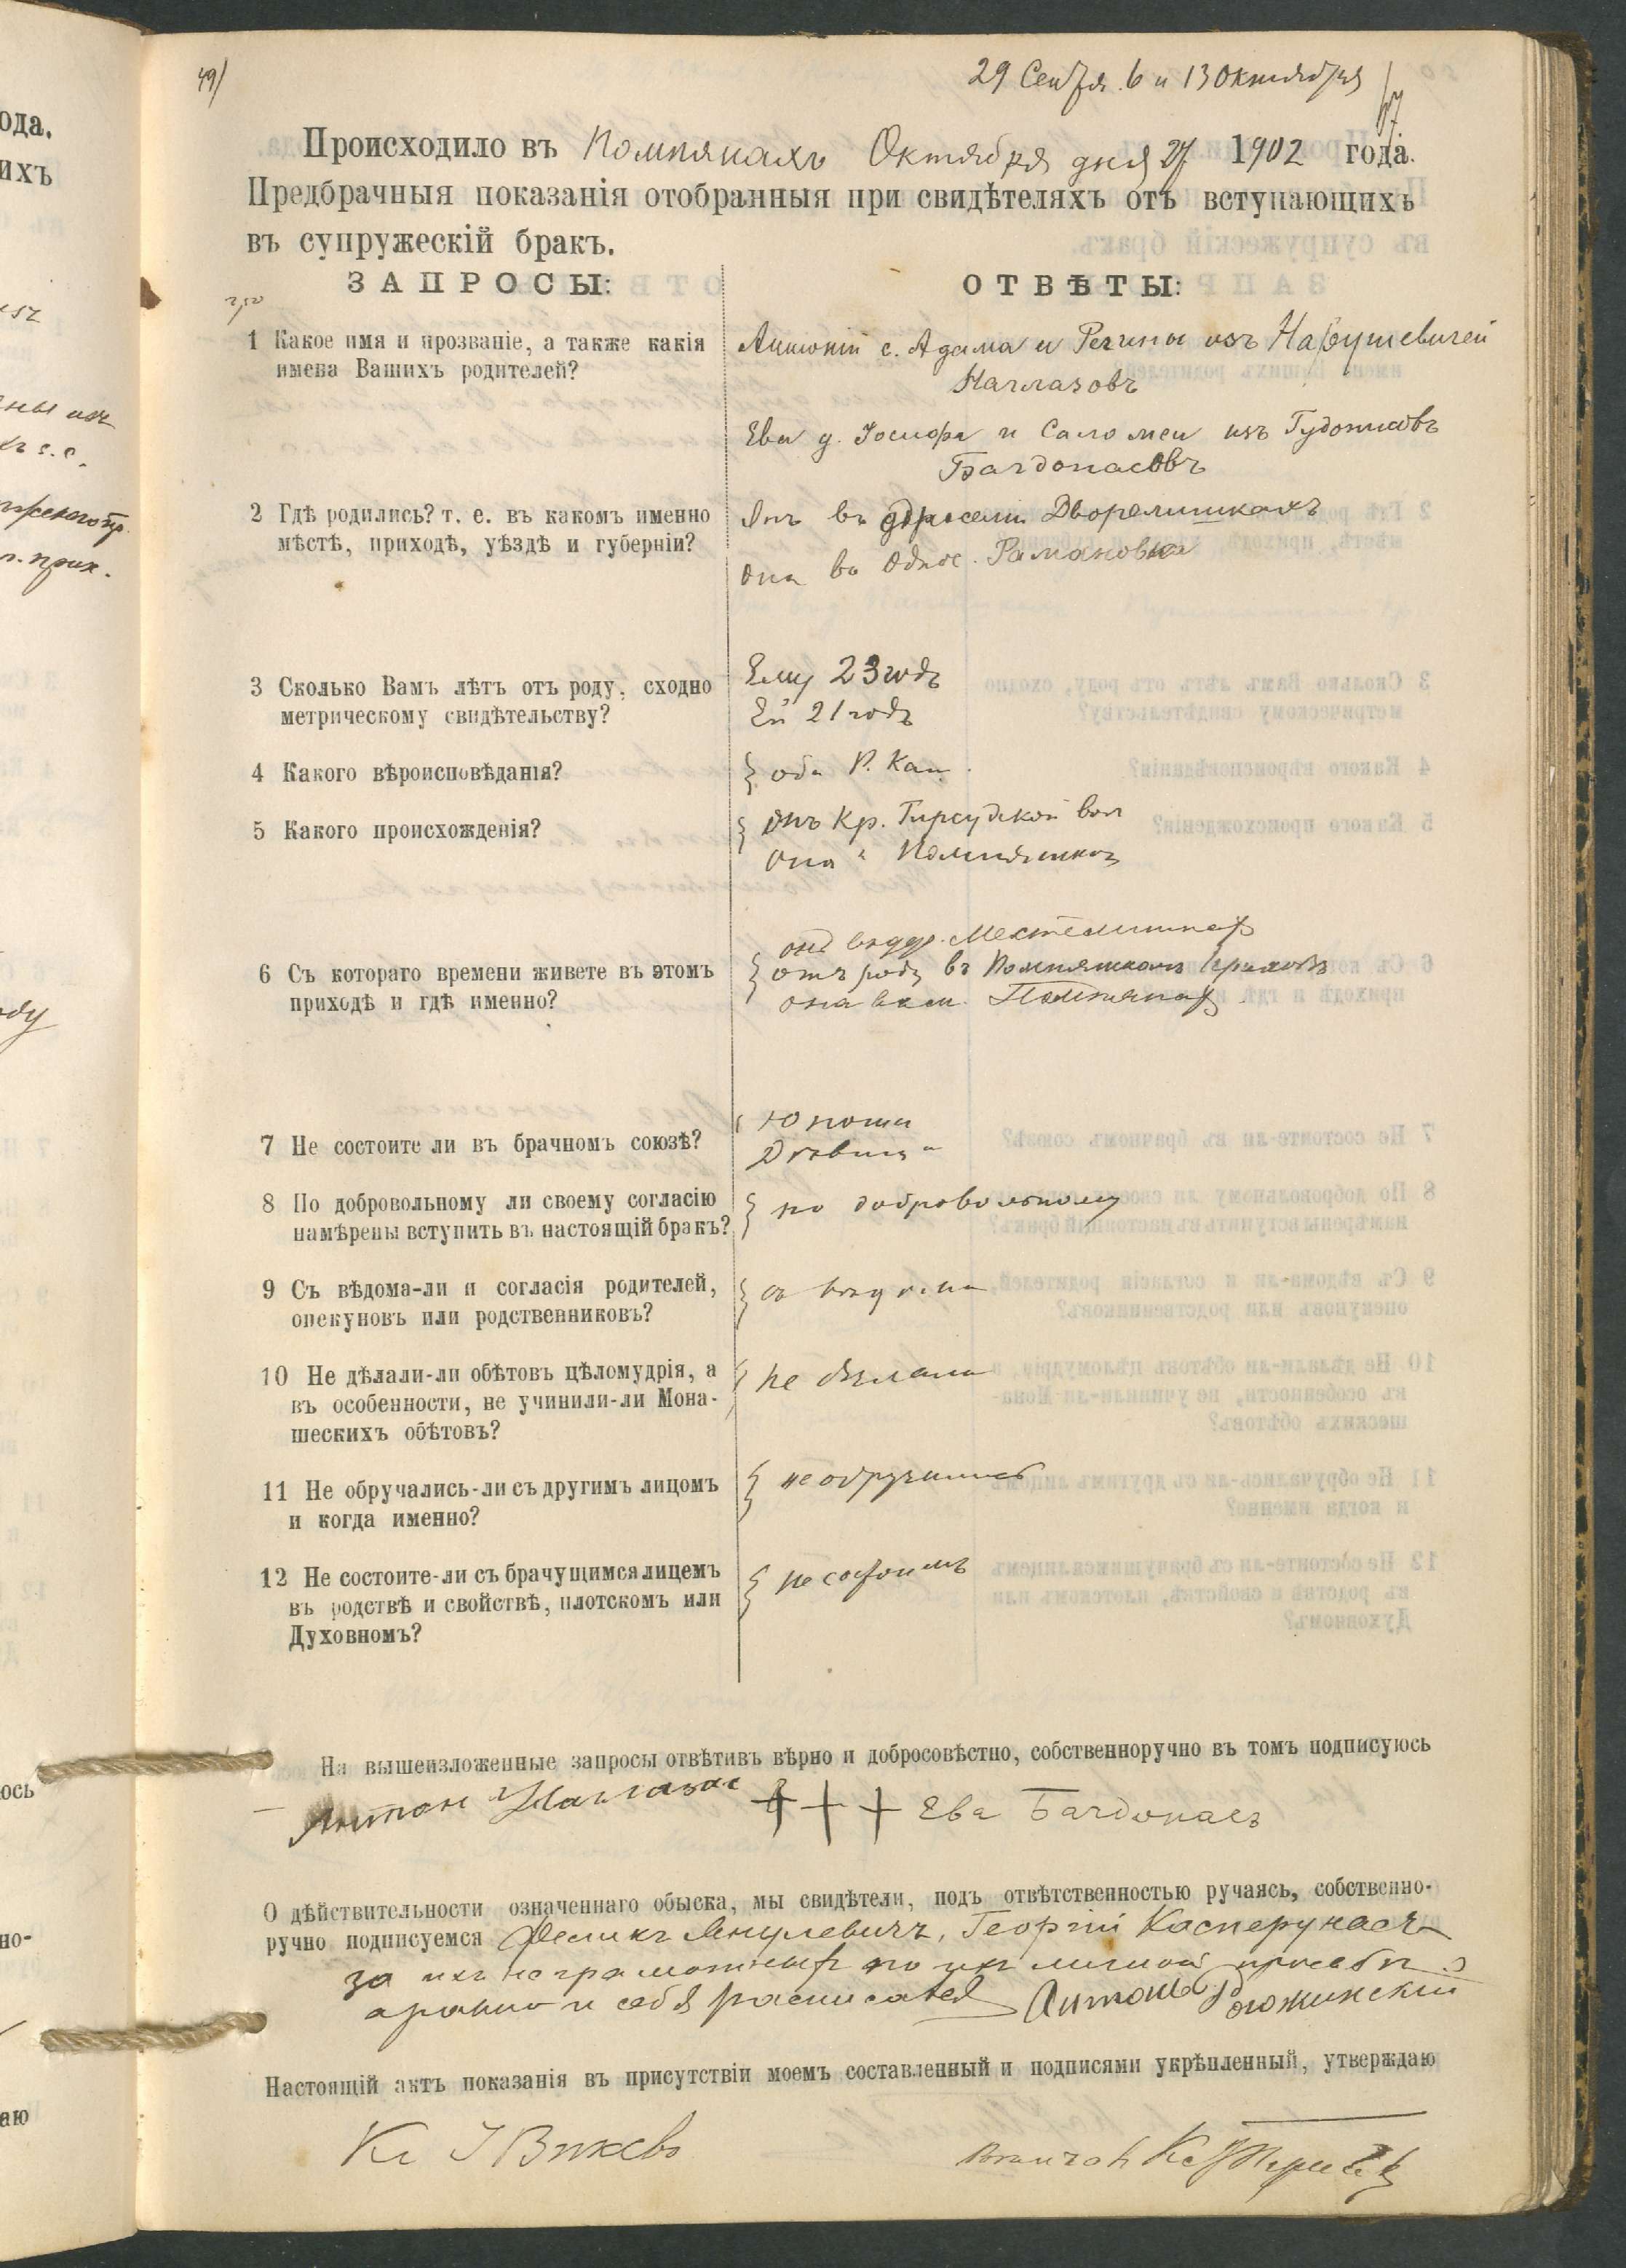 49)
29 Сентя. 6 и 13 Октября
Происходило въ Помпянахъ Октября дня 27 1902 года.
Предбрачныя показанія отобранныя при свидѣтеляхъ отъ вступающихъ
въ супружескій бракъ.
ЗАПРОСЫ:
ОТВѢТЫ:
1 Какое имя и прозваніе, а также какія
имена Вашихъ родителей?
Антоній с. Адама и Регины изъ Нарушевичей
Наглазовъ
Ева д. Іосифа и Саломеи изъ
Багдонасовъ
2 Гдѣ родились? т. е. въ какомъ именно
мѣстѣ, приходѣ, уѣздѣ и губерніи?
Онъ въ Дворелишкахъ
Она въ Однос. Романовка
3 Сколько Вамъ лѣтъ отъ роду, сходно
метрическому свидѣтельству?
Ему 23 годъ
Ей 21 годъ
4 Какого вѣроисповѣданія?
оба Р. Кат.
5 Какого происхожденія?
онъ Кр. Гирсудской вол
она " Помпянской
6 Съ котораго времени живете въ этомъ
приходѣ и гдѣ именно?
онъ въ
отъ роду въ Помпянскомъ приходѣ
она въ им. Помпянахъ
7 Не состоите ли въ брачномъ союзѣ?
Юноша
Дѣвица
8 По добровольному ли своему согласію
намѣрены вступить въ настоящій бракъ?
по добровольному
9 Съ вѣдома-ли и согласія родителей,
опекуновъ или родственниковъ?
съ вѣдома
10 Не дѣлали-ли обѣтовъ цѣломудрія, а
въ особенности, не учинили-ли Мона-
шескихъ обѣтовъ?
не дѣлали
11 Не обручались-ли съ другимъ лицомъ
и когда именно?
не обручались
12 Не состоите-ли съ брачущимся лицемъ
въ родствѣ и свойствѣ, плотскомъ или
Духовномъ?
не состоимъ
На вышеизложенные запросы отвѣтивъ вѣрно и добросовѣстно, собственноручно въ томъ подписуюсь
Антон Наглазас + + + Ева Багдонасъ
О дѣйствительности означеннаго обыска, мы свидѣтели, подъ отвѣтственностью ручаясь, собственно-
ручно подписуемся Феликъ Янулевичъ, Георгій Касперунасъ
за ихъ неграмотныхъ по ихъ личной просьбѣ
и себя расписался Антоній
Настоящій актъ показанія въ присутствіи моемъ составленный и подписями укрѣпленный, утверждаю